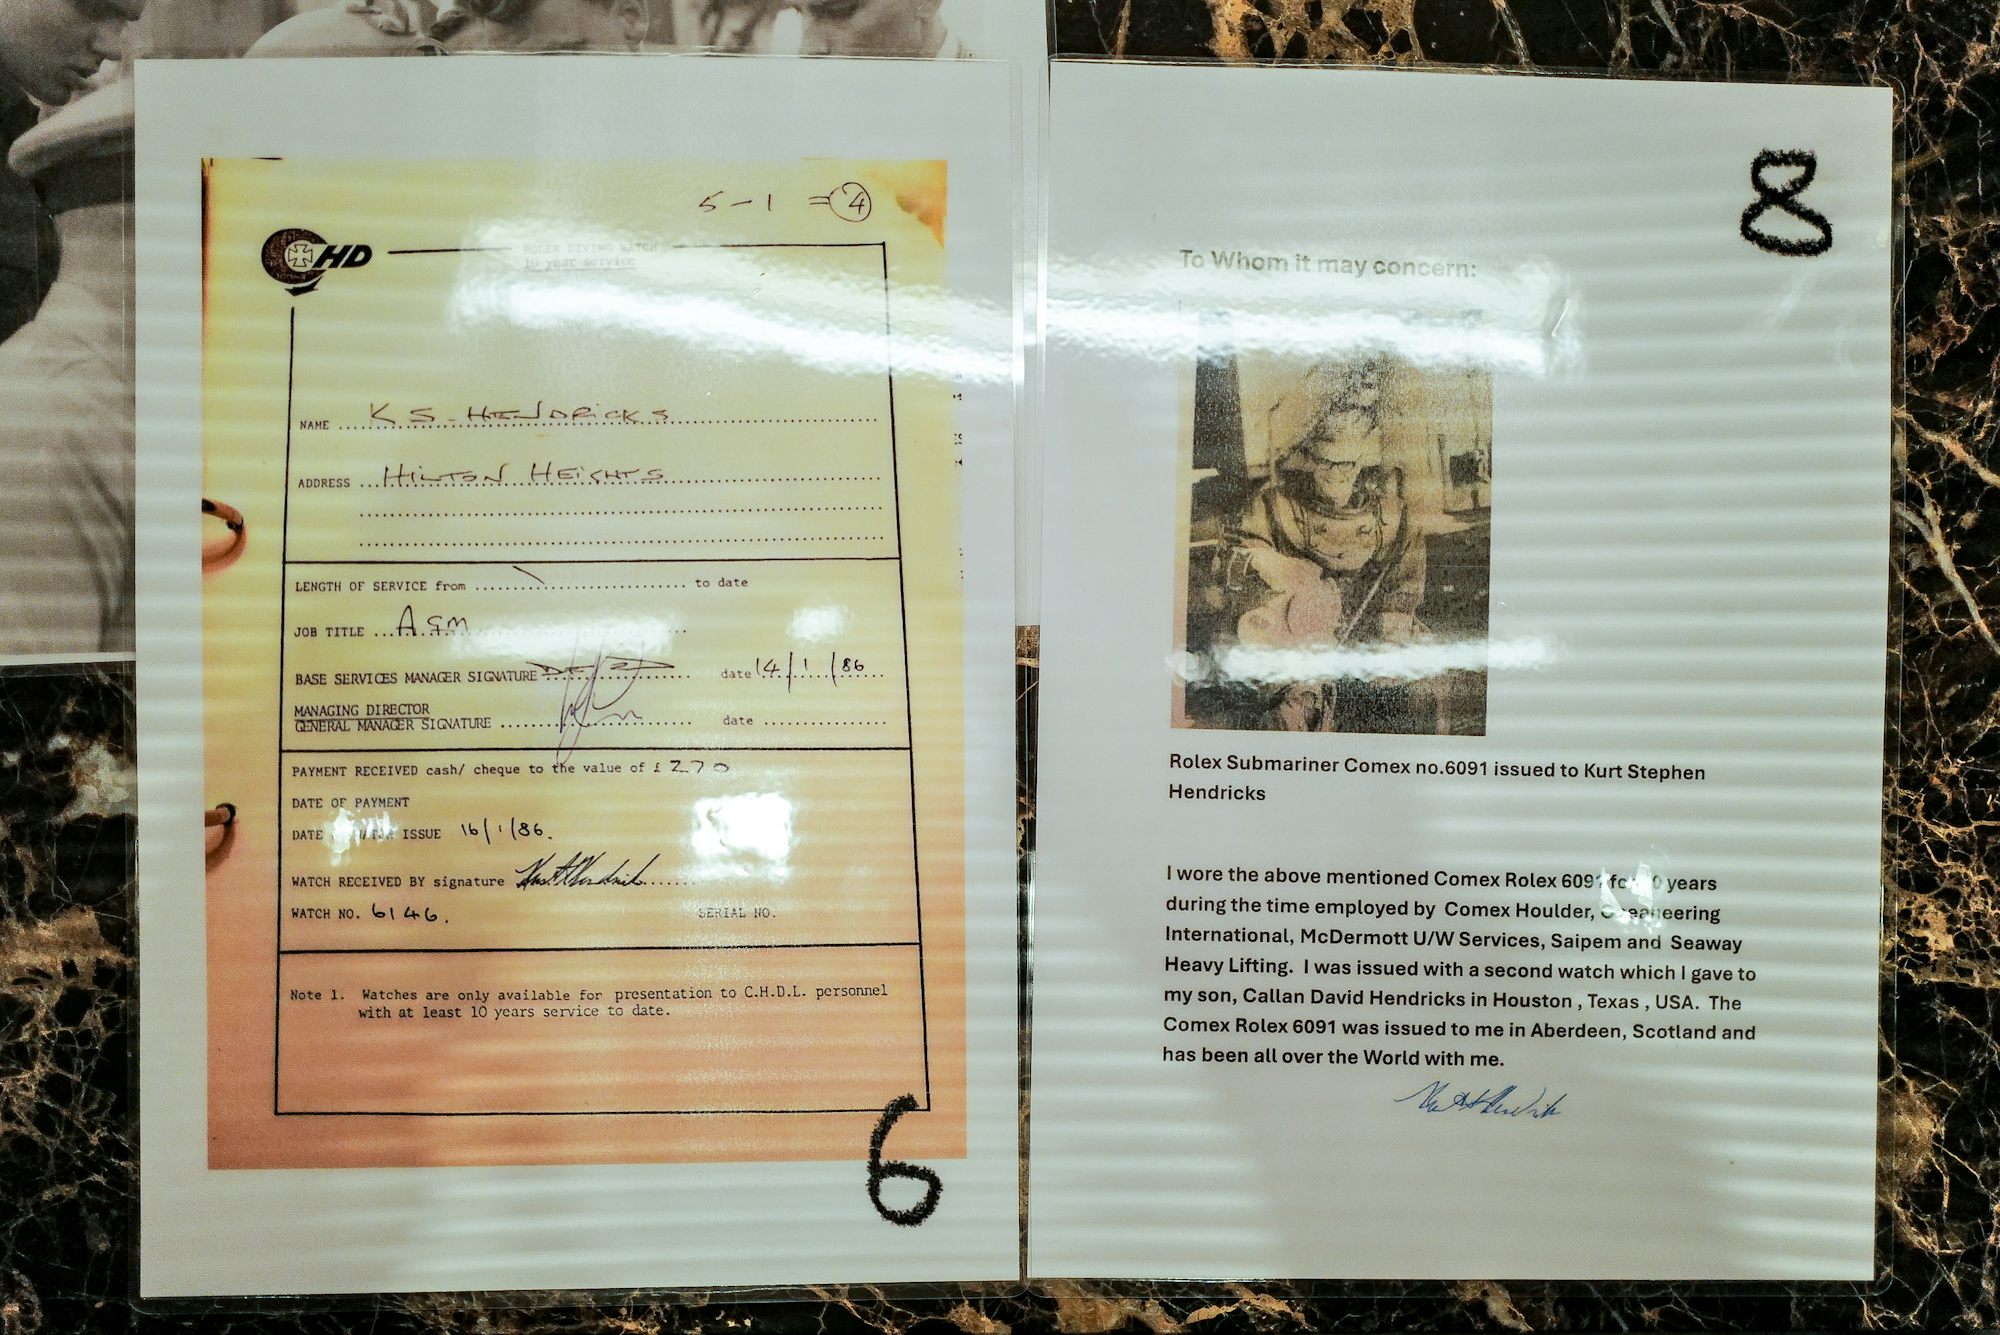 5 - 1 = 4
CHD
ROLEX DIVING WATCH
10 year service
NAME K S. HENDRICKS
ADDRESS HILTON HEIGHTS
LENGTH OF SERVICE from ........ to date
JOB TITLE AGM
BASE SERVICES MANAGER SIGNATURE ........ date 14/1/86
MANAGING DIRECTOR
GENERAL MANAGER SIGNATURE ........ date ........
PAYMENT RECEIVED cash/ cheque to the value of £ 270
DATE OF PAYMENT
DATE ISSUE 16/1/86.
WATCH RECEIVED BY signature
WATCH NO. 6146. SERIAL NO.
Note 1. Watches are only available for presentation to C.H.D.L. personnel
with at least 10 years service to date.
6
8
To Whom it may concern:
Rolex Submariner Comex no.6091 issued to Kurt Stephen
Hendricks
I wore the above mentioned Comex Rolex 6091 years
during the time employed by Comex Houlder,
International, McDermott U/W Services, Saipem and Seaway
Heavy Lifting. I was issued with a second watch which I gave to
my son, Callan David Hendricks in Houston , Texas , USA. The
Comex Rolex 6091 was issued to me in Aberdeen, Scotland and
has been all over the World with me.